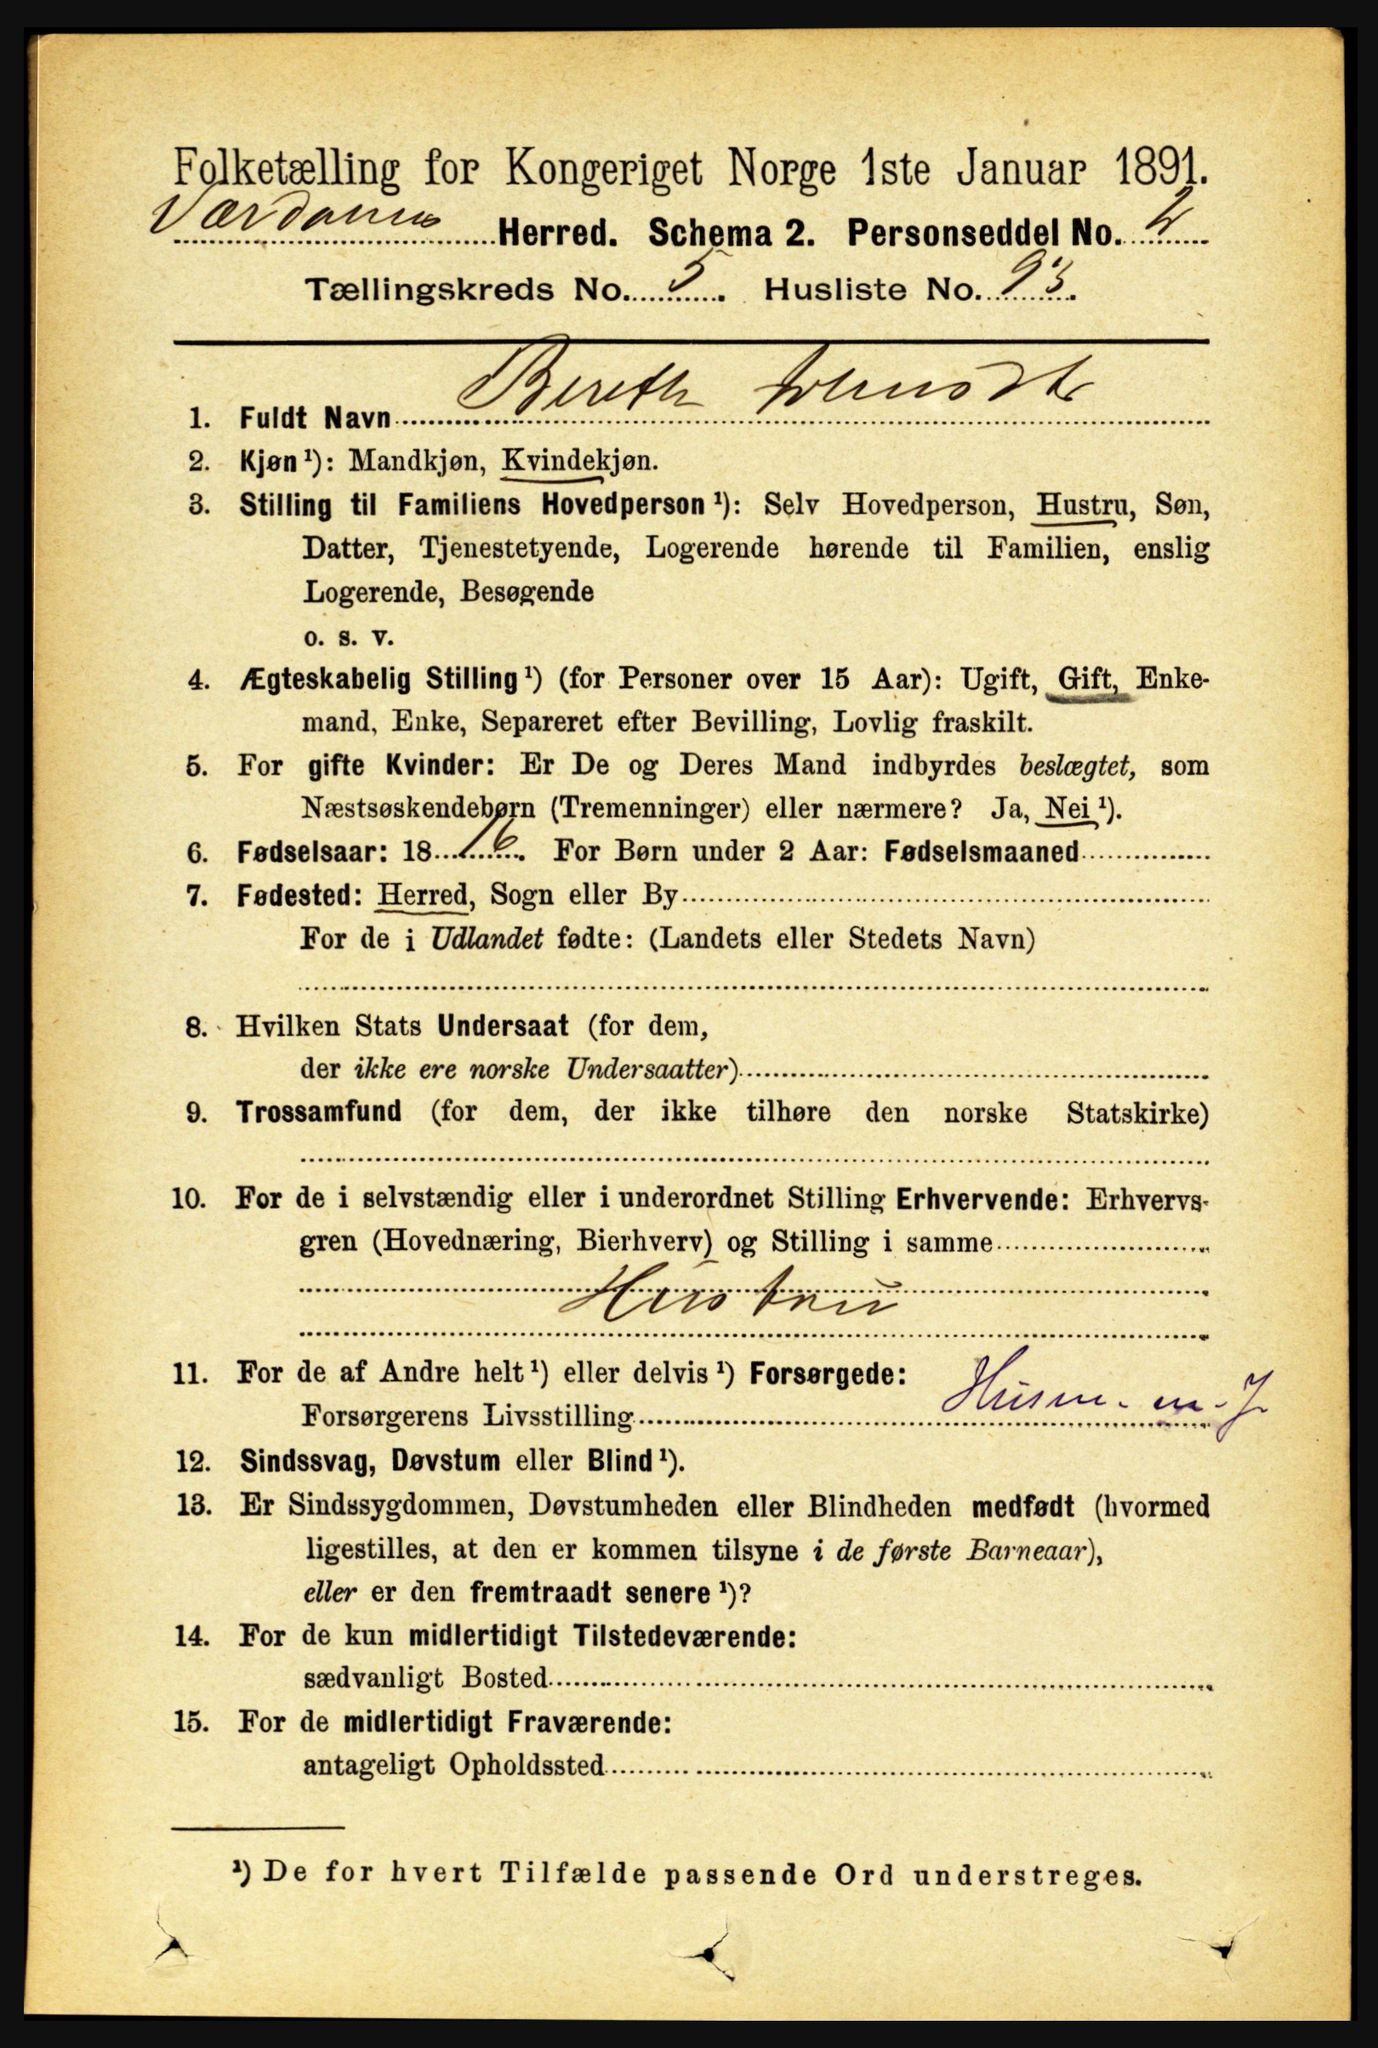 Folketælling for Kongeriget Norge 1ste Januar 1891.
Værdalens Herred. Schema 2. Personseddel No. 2
Tællingskreds No. 5. Husliste No. 93.
1. Fuldt Navn Bereth
2. Kjøn ¹): Mandkjøn, Kvindekjøn.
3. Stilling til Familiens Hovedperson ¹): Selv Hovedperson, Hustru, Søn,
Datter, Tjenestetyende, Logerende hørende til Familien, enslig
Logerende, Besøgende
o. s. v.
4. Ægteskabelig Stilling ¹) (for Personer over 15 Aar): Ugift, Gift, Enke-
mand, Enke, Separeret efter Bevilling, Lovlig fraskilt.
5. For gifte Kvinder: Er De og Deres Mand indbyrdes beslægtet, som
Næstsøskendebørn (Tremenninger) eller nærmere? Ja, Nei ¹).
6. Fødselsaar: 18 16. For Børn under 2 Aar: Fødselsmaaned
7. Fødested: Herred, Sogn eller By
For de i Udlandet fødte: (Landets eller Stedets Navn)
8. Hvilken Stats Undersaat (for dem,
der ikke ere norske Undersaatter)
9. Trossamfund (for dem, der ikke tilhøre den norske Statskirke)
10. For de i selvstændig eller i underordnet Stilling Erhvervende: Erhvervs-
gren (Hovednæring, Bierhverv) og Stilling i samme
Hustru
11. For de af Andre helt ¹) eller delvis ¹) Forsørgede:
Forsørgerens Livsstilling Husm. m. J
12. Sindssvag, Døvstum eller Blind ¹).
13. Er Sindssygdommen, Døvstumheden eller Blindheden medfødt (hvormed
ligestilles, at den er kommen tilsyne i de første Barneaar),
eller er den fremtraadt senere ¹)?
14. For de kun midlertidigt Tilstedeværende:
sædvanligt Bosted
15. For de midlertidigt Fraværende:
antageligt Opholdssted
¹) De for hvert Tilfælde passende Ord understreges.